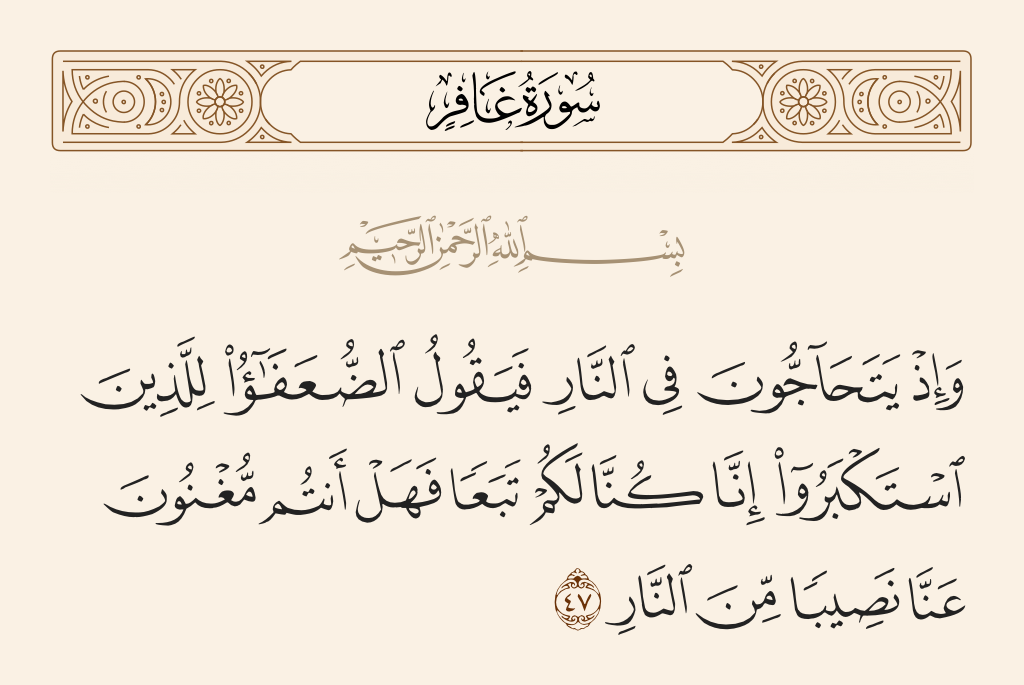 سُورَةُ غَافِرٍ
بِسْمِ ٱللَّهِ ٱلرَّحْمَٰنِ ٱلرَّحِيمِ
وَإِذْ يَتَحَآجُّونَ فِى ٱلنَّارِ فَيَقُولُ ٱلضُّعَفَـٰٓؤُا۟ لِلَّذِينَ
ٱسْتَكْبَرُوٓا۟ إِنَّا كُنَّا لَكُمْ تَبَعًا فَهَلْ أَنتُم مُّغْنُونَ
عَنَّا نَصِيبًا مِّنَ ٱلنَّارِ ٤٧